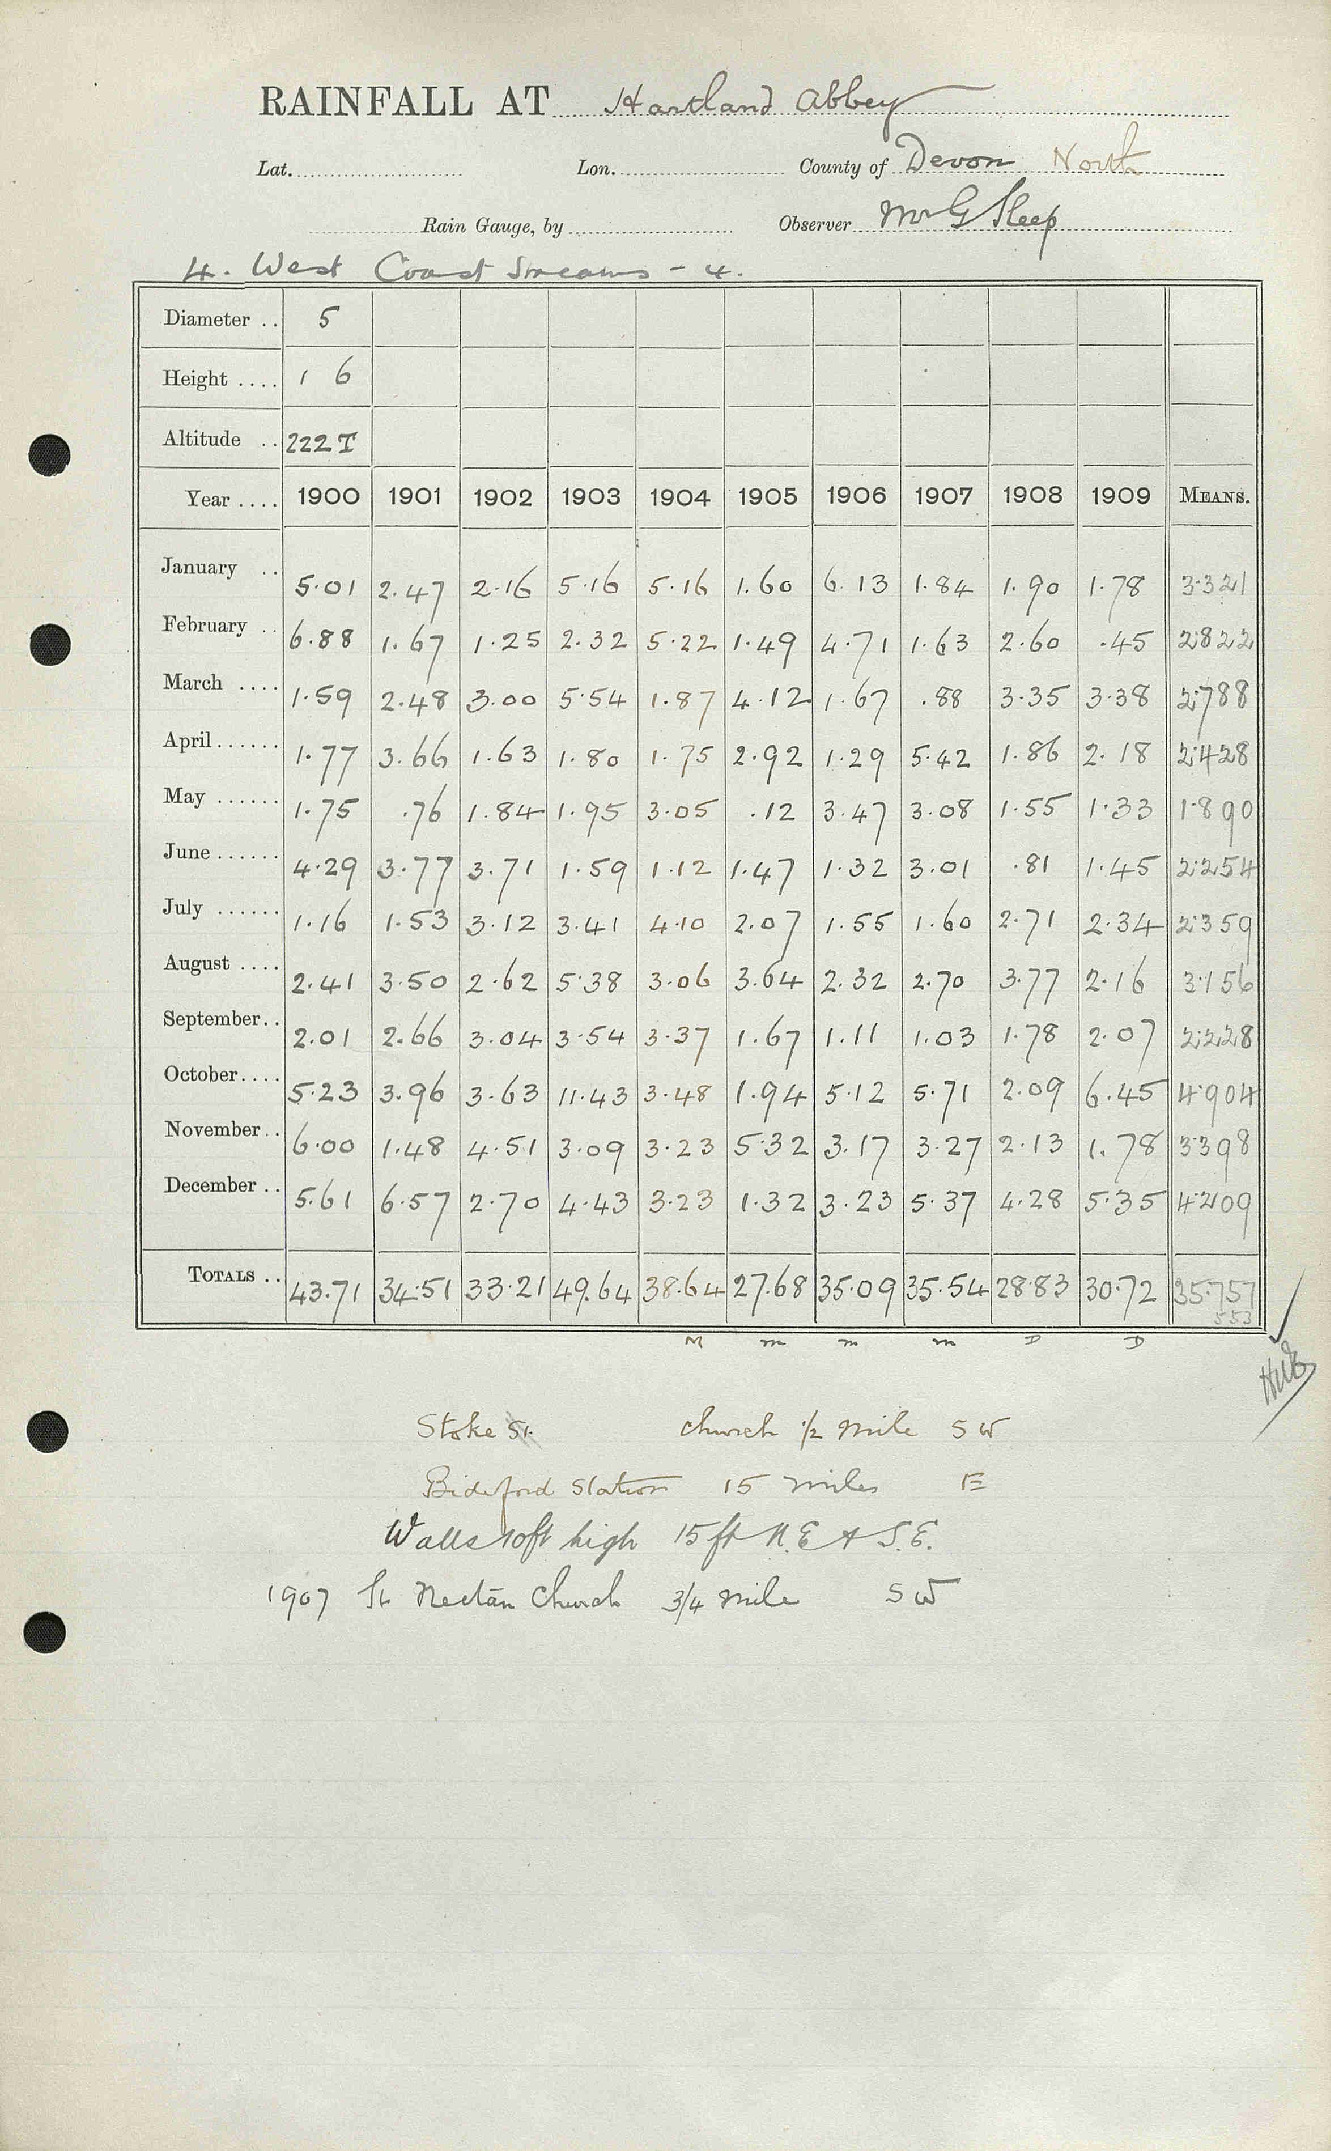 RAINFALL AT Hartland Abbey
Lat. Lon. County of Devon North
Rain Gauge, by Observer Mr G Sleep
4. West Coast Streams - 4.
Diameter .. 5
Height .... 1 6
Altitude .. 222 T
Year .... 1900 1901 1902 1903 1904 1905 1906 1907 1908 1909 MEANS.
January .. 5.01 2.47 2.16 5.16 5.16 1.60 6.13 1.84 1.90 1.78 3.321
February .. 6.88 1.67 1.25 2.32 5.22 1.49 4.71 1.63 2.60 .45 2.822
March .... 1.59 2.48 3.00 5.54 1.87 4.12 1.67 .88 3.35 3.38 2.788
April ...... 1.77 3.66 1.63 1.80 1.75 2.92 1.29 5.42 1.86 2.18 2.428
May ...... 1.75 .76 1.84 1.95 3.05 .12 3.47 3.08 1.55 1.33 1.890
June ...... 4.29 3.77 3.71 1.59 1.12 1.47 1.32 3.01 .81 1.45 2.254
July ...... 1.16 1.53 3.12 3.41 4.10 2.07 1.55 1.60 2.71 2.34 2.359
August .... 2.41 3.50 2.62 5.38 3.06 3.64 2.32 2.70 3.77 2.16 3.156
September .. 2.01 2.66 3.04 3.54 3.37 1.67 1.11 1.03 1.78 2.07 2.228
October .... 5.23 3.96 3.63 11.43 3.48 1.94 5.12 5.71 2.09 6.45 4.904
November .. 6.00 1.48 4.51 3.09 3.23 5.32 3.17 3.27 2.13 1.78 3.398
December .. 5.61 6.57 2.70 4.43 3.23 1.32 3.23 5.37 4.28 5.35 4.209
TOTALS .. 43.71 34.51 33.21 49.64 38.64 27.68 35.09 35.54 28.83 30.72 35.757
553
M m m m D D
Stoke St. church ½ mile SW
Bideford Station 15 miles E
Walls 10ft high 15 ft N.E & S.E.
1907 St Nectan Church 3/4 mile SW